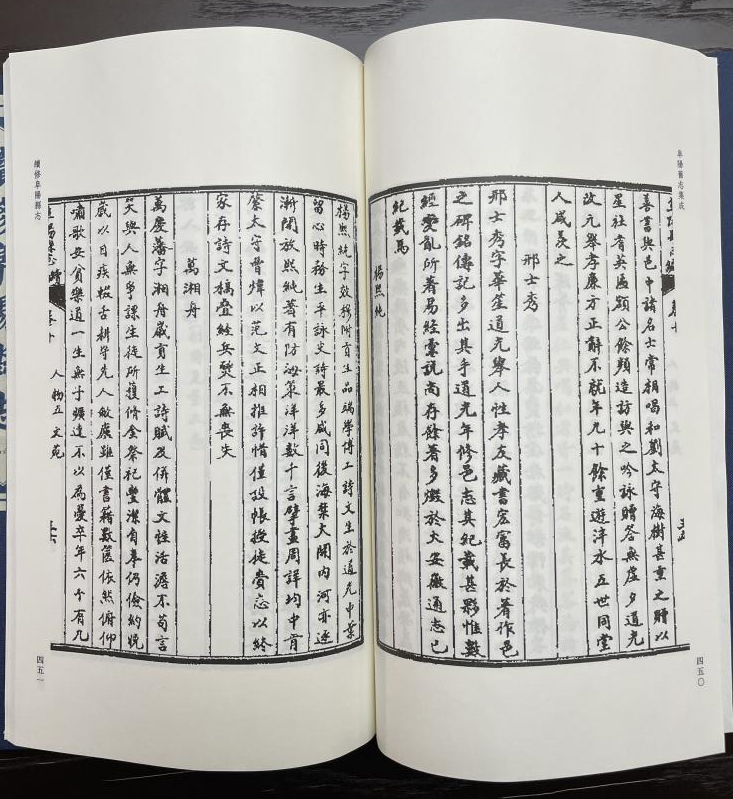 阜陽舊志集成
善書與邑中諸名士常相唱和劉太守海樹甚重之贈以
星社者英匾額公餘頻造訪與之吟詠贈答無虛夕道光
改元舉孝廉方正辭不就年九十餘重遊泮水五世同堂
人咸羨之
邢士秀
邢士秀字華笙道光舉人性孝友藏書宏富長於著作邑
之碑銘傳記多出其手道光年修邑志其紀載甚夥惟數
經變亂所著易經彙說尚存餘著多燬於火安徽通志已
紀載焉
楊熙純
四五〇
續修阜陽縣志
楊熙純字敬修附貢生品端學博工詩文生於道光中葉
留心時務生平詠史詩最多咸同後海禁大開內河亦逐
漸開放熙純著有防海策洋洋數千言擘畫周詳均中肯
綮太守曾煒以范文正相推許惜僅設帳授徒賫志以終
家存詩文稿疊經兵燹不無喪失
萬湘舟
萬慶藩字湘舟歲貢生工詩賦及駢體文性活潑不苟言
笑與人無爭課生徒所獲脩金祭祀豐潔自奉仍儉約晚
歲以目疾輟舌耕守先人敝廬雖僅書籍數篋依然俯仰
嘯歌安貧樂道一生無子曠達不以為憂卒年六十有九
卷十 人物五 文苑
四五一